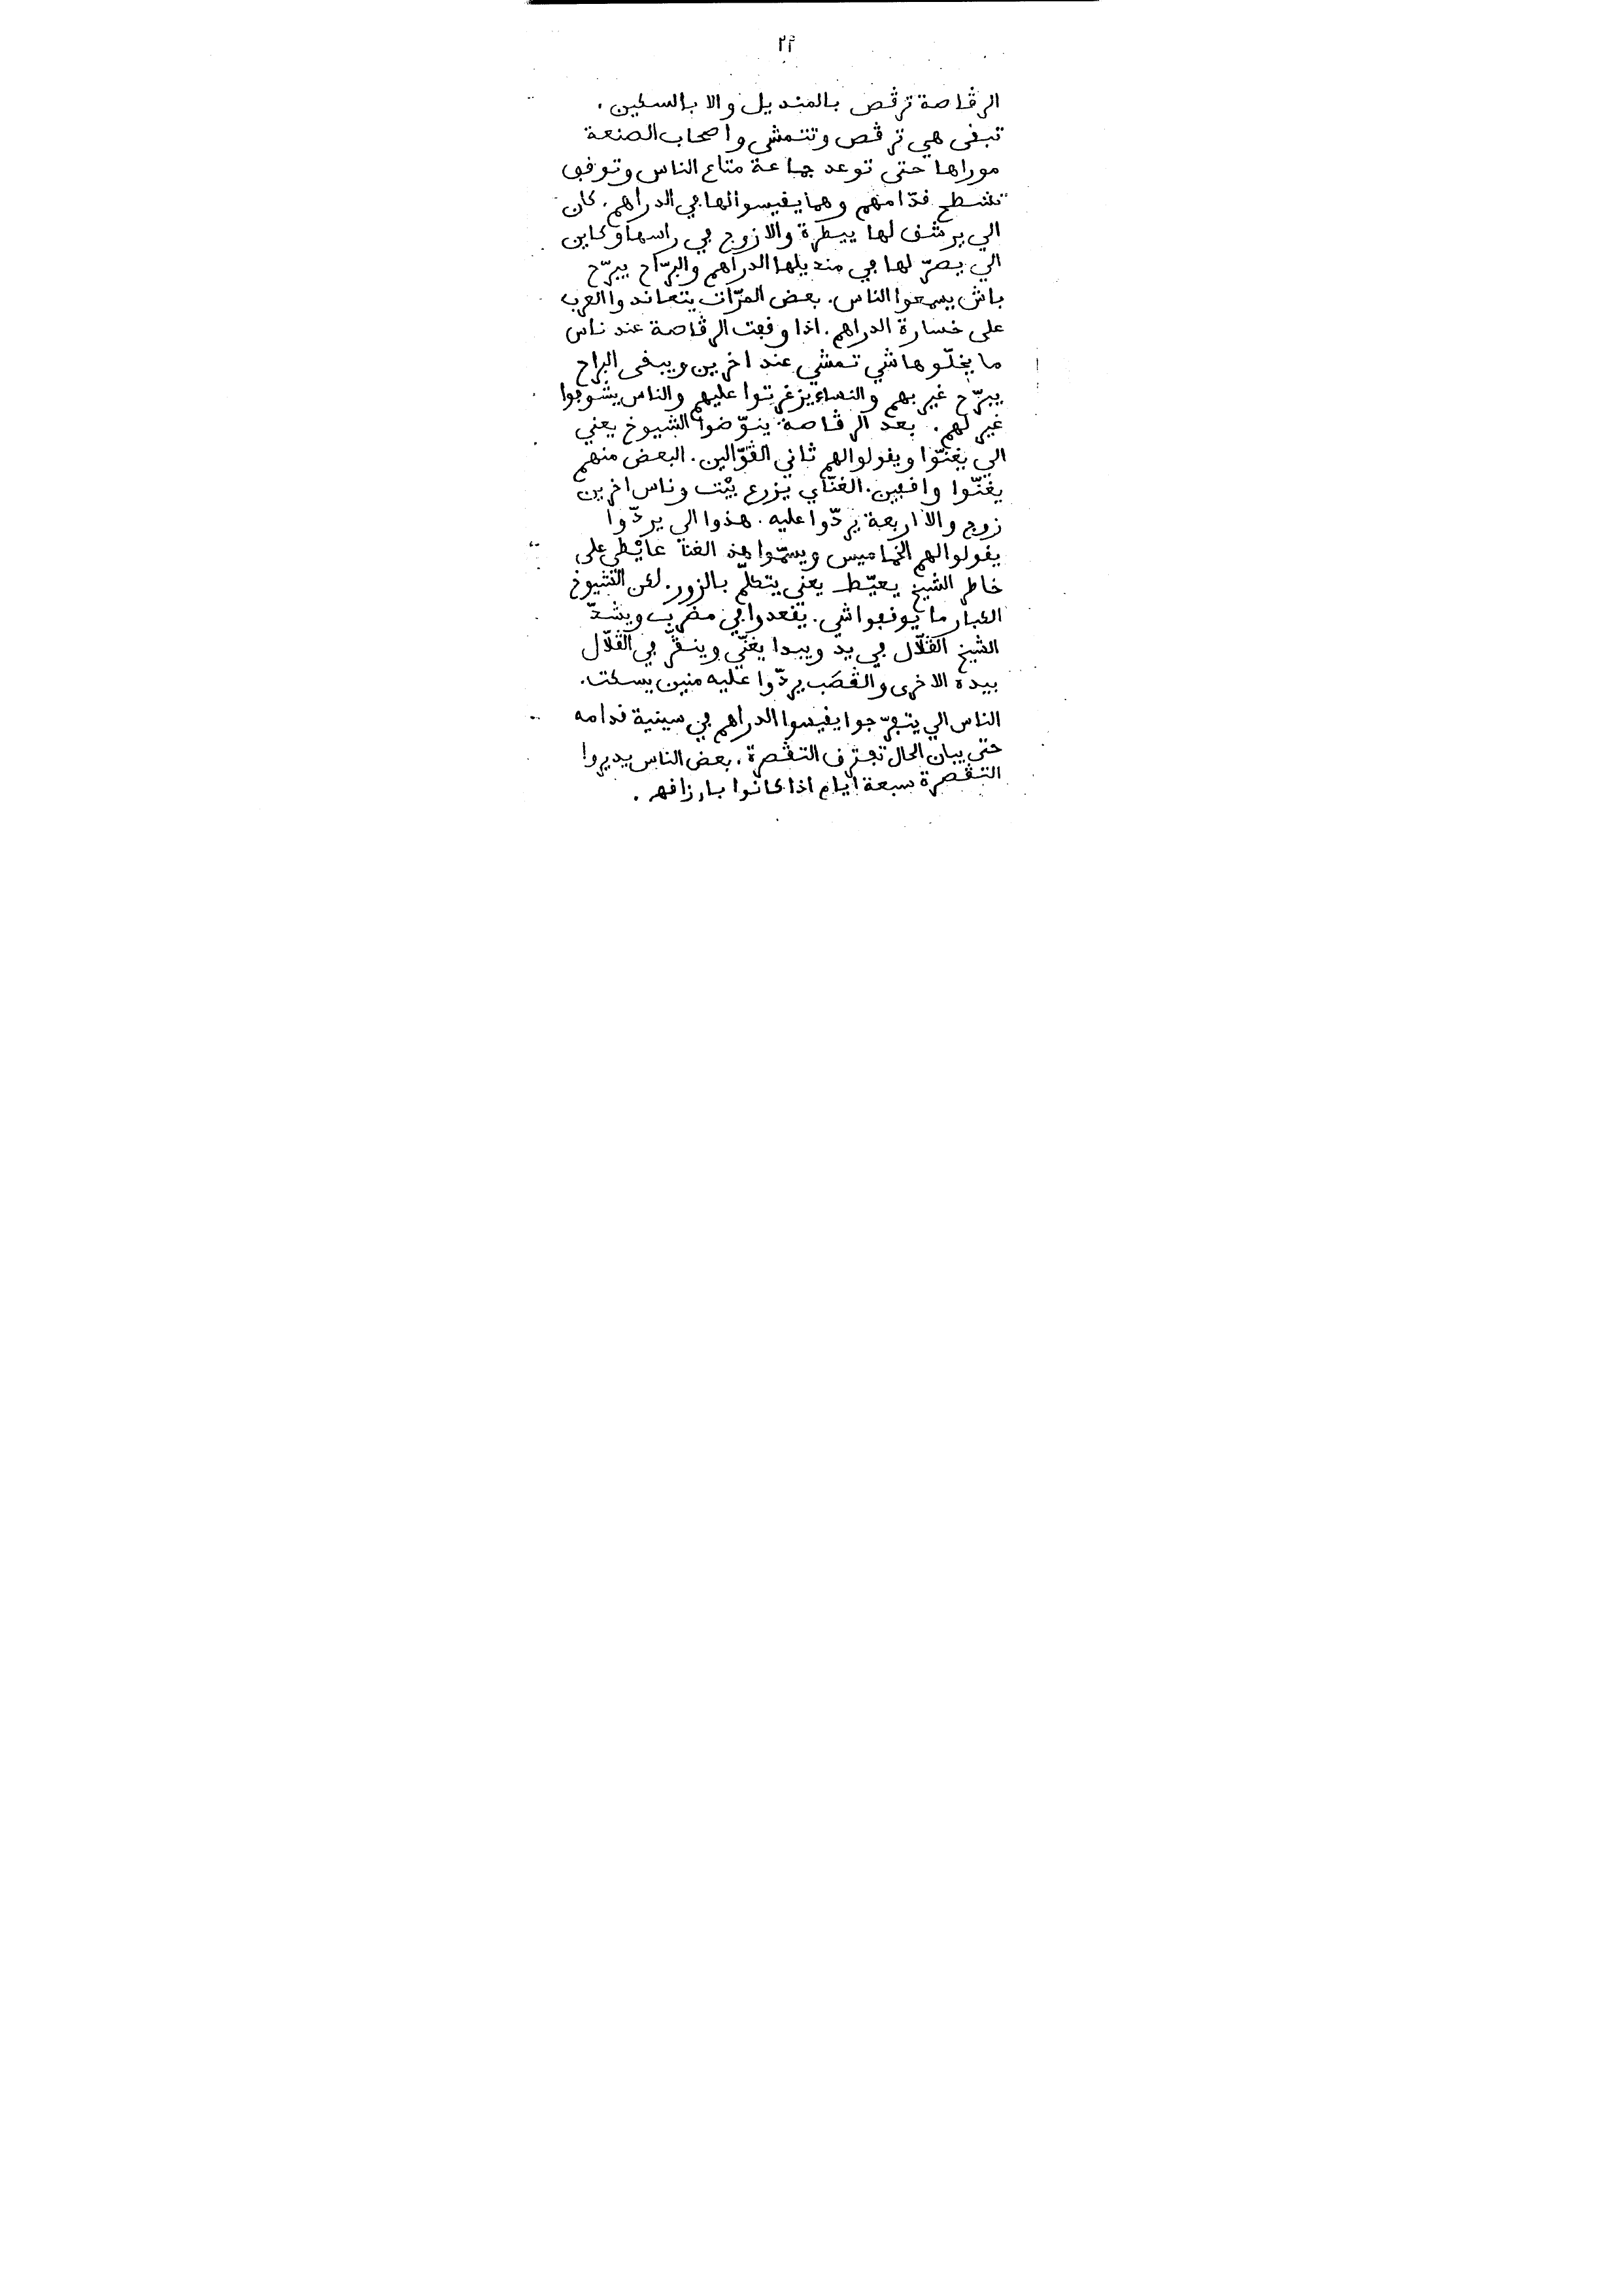 ٢٢
الرڤاصة ترڤص بالمنديل والا بالسكين .
تبفى هي ترڤص وتتمشى واصحاب الصنعة
موراها حتى توعد جماعة متاع الناس وتوفڢ
تشطح فدّامهم وهما يفيسوا لها ڢي الدراهم . كان
الي يرشف لها ييطرة والا زوج ڢي راسها وكاين
الي يصرّ لها ڢي منديلها الدراهم والبرّاح يبرّح
باش يسمعوا الناس . بعض المرّات يتعاندوا العرب
على خسارة الدراهم . اذا وفڢت الرڤاصة عند ناس
ما يخلّوهاشي تمشي عند اخرين ويبفى البراح
يبرّح غير بهم والنساء يزغرتوا عليهم والناس يشوڢوا
غير لهم . بعد الرڤاصة ينوّضوا الشيوخ يعني
الي يغنّوا ويفولوا لهم ثاني الڤوّالين . البعض منهم
يغنّوا وافڢين . الغنّاي يزرع بيْت وناس اخرين
زوج والا اربعة يردّوا عليه . هذوا الي يردّوا
يفولوا لهم الخماميس ويسمّوا هذ الغنا عايْطي على
خاطر الشيخ يعيّط يعني يتكلّم بالزور . لكن الشيوخ
الكبار ما يوفڢواشي . يفعدوا ڢي مضرب ويشدّ
الشيخ الڤلّال ڢي يد ويبدا يغنّي وينڤّر ڢي الڤلّال
بيده الاخرى والڤصَب يردّوا عليه منين يسكت .
الناس الي يتڢرّجوا يفيسوا الدراهم ڢي سينية فدامه
حتى يبان الحال تڢترف التڤصرة . بعض الناس يديروا
التڤصرة سبعة ايام اذا كانوا بارزافهم .